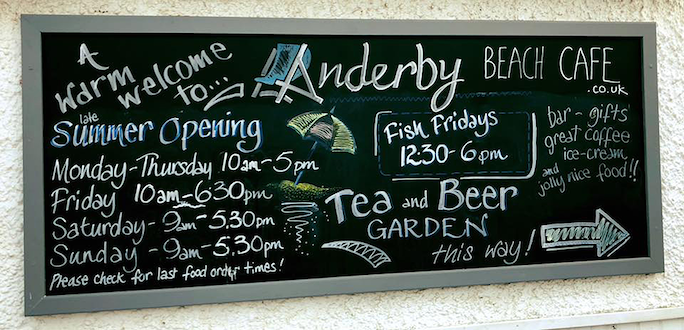 A
warm
welcome
to...
Anderby BEACH CAFE
.co.uk
late
Summer Opening
Monday-Thursday 10am-5pm
Friday 10am-6:30pm
Saturday-9am-5.30pm
Sunday-9am-5.30pm
Please check for last food order times!
Fish Fridays
12:30-6pm
bar - gifts
great coffee
ice-cream
and
jolly nice food!!
Tea and Beer
GARDEN
this way!